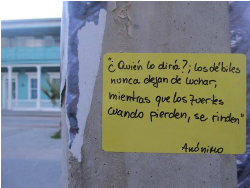 "¿Quién lo diría?; los débiles
nunca dejan de luchar,
mientras que los fuertes
cuando pierden, se rinden"
ANÓNIMO